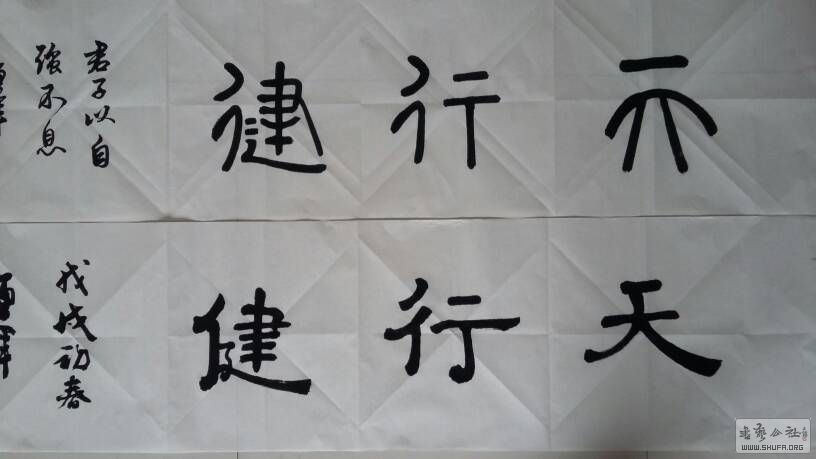 天行健
君子以自
强不息
天行健
戊戌初春
書藝公社
WWW.SHUFA.ORG